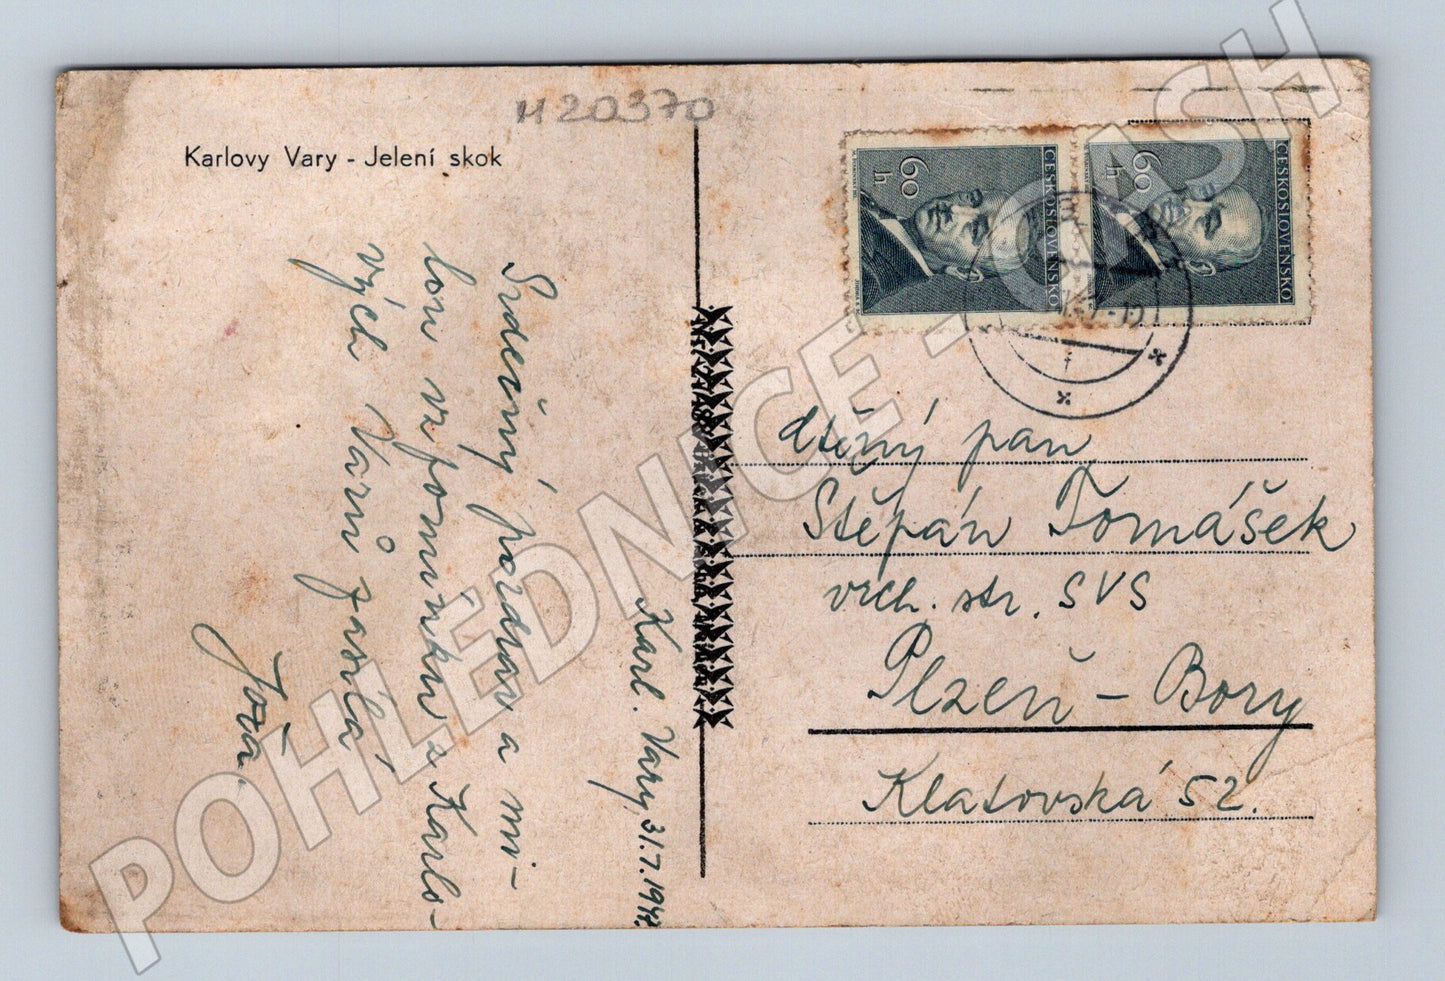 M 20370
Karlovy Vary - Jelení skok
Karl. Vary, 31.7.1947.
Srdečný pozdrav a mi-
lou vzpomínku z Karlo-
vých Varů zasílá
Joža.
60
h
ČESKOSLOVENSKO
60
h
ČESKOSLOVENSKO
ctěný pan
Štěpán Tomášek
vrch. str. SVS
Plzeň - Bory
Klatovská 52.
POHLEDNICE - CASH